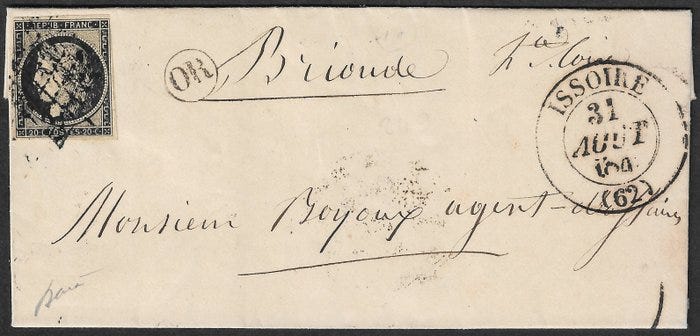 REPUB. FRANC.
20 C POSTES 20 C
OR
Brioude hte Loire
ISSOIRE
31
AOUT
184
(62)
Monsieur Boyoux agent-d'affaires